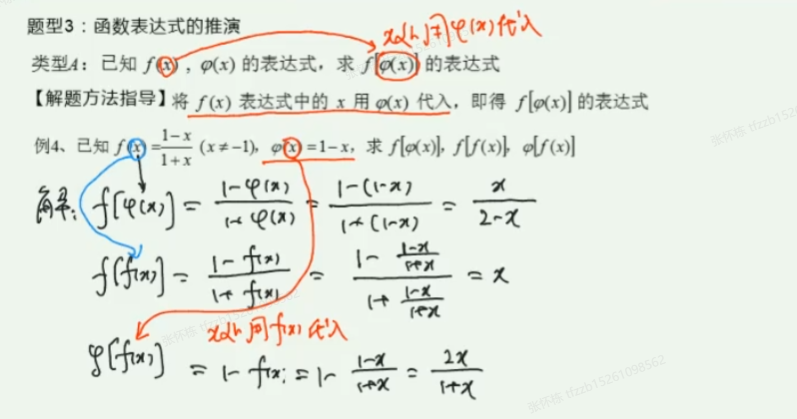 题型3：函数表达式的推演
x处用φ(x)代入
类型A：已知 f(x)，φ(x) 的表达式，求 f[φ(x)] 的表达式
【解题方法指导】将 f(x) 表达式中的 x 用 φ(x) 代入，即得 f[φ(x)] 的表达式
例4、已知 f(x)=\frac{1-x}{1+x} (x≠-1), φ(x)=1-x，求 f[φ(x)], f[f(x)], φ[f(x)]
解: f[φ(x)] = \frac{1-φ(x)}{1+φ(x)} = \frac{1-(1-x)}{1+(1-x)} = \frac{x}{2-x}
f[f(x)] = \frac{1-f(x)}{1+f(x)} = \frac{1-\frac{1-x}{1+x}}{1+\frac{1-x}{1+x}} = x
x处用f(x)代入
φ[f(x)] = 1-f(x) = 1-\frac{1-x}{1+x} = \frac{2x}{1+x}
张怀栋 tfzzb15261098562